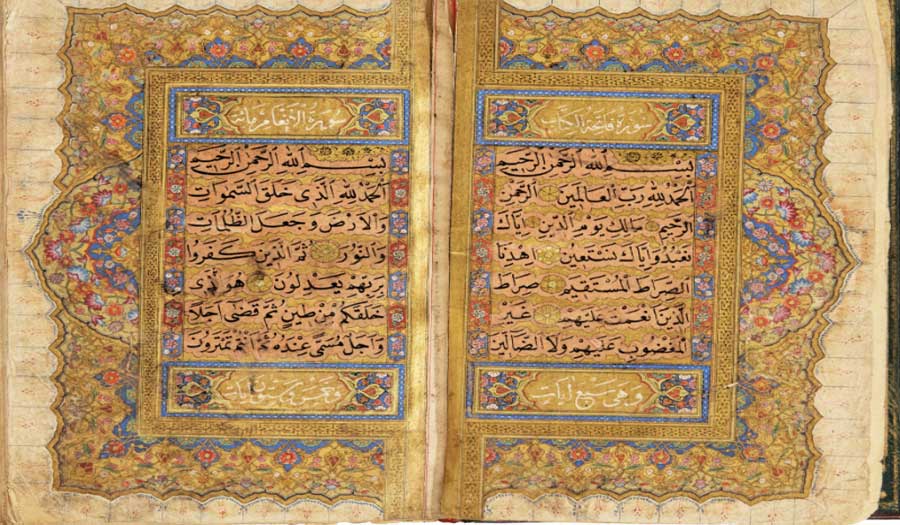 سُورَة فَاتِحَة الْكِتَاب
بِسْمِ اللهِ الرَّحْمٰنِ الرَّحِيمِ
اَلْحَمْدُ لِلهِ رَبِّ الْعَالَمِينَ الرَّحْمٰنِ
الرَّحِيمِ مَالِكِ يَوْمِ الدِّينِ اِيَّاكَ
نَعْبُدُ وَاِيَّاكَ نَسْتَعِينُ اِهْدِنَا
الصِّرَاطَ الْمُسْتَقِيمَ صِرَاطَ
الَّذِينَ اَنْعَمْتَ عَلَيْهِمْ غَيْرِ
الْمَغْضُوبِ عَلَيْهِمْ وَلَا الضَّالِّينَ
وهي سبع ايات
سُورَة الانعام مائة
بِسْمِ اللهِ الرَّحْمٰنِ الرَّحِيمِ
اَلْحَمْدُ لِلهِ الَّذِى خَلَقَ السَّمٰوَاتِ
وَالْاَرْضَ وَجَعَلَ الظُّلُمَاتِ
وَالنُّورَ ثُمَّ الَّذِينَ كَفَرُوا
بِرَبِّهِمْ يَعْدِلُونَ هُوَ الَّذِى
خَلَقَكُمْ مِنْ طِينٍ ثُمَّ قَضٰى اَجَلًا
وَاَجَلٌ مُسَمًّى عِنْدَهُ ثُمَّ اَنْتُمْ تَمْتَرُونَ
وخمس وستون ايات